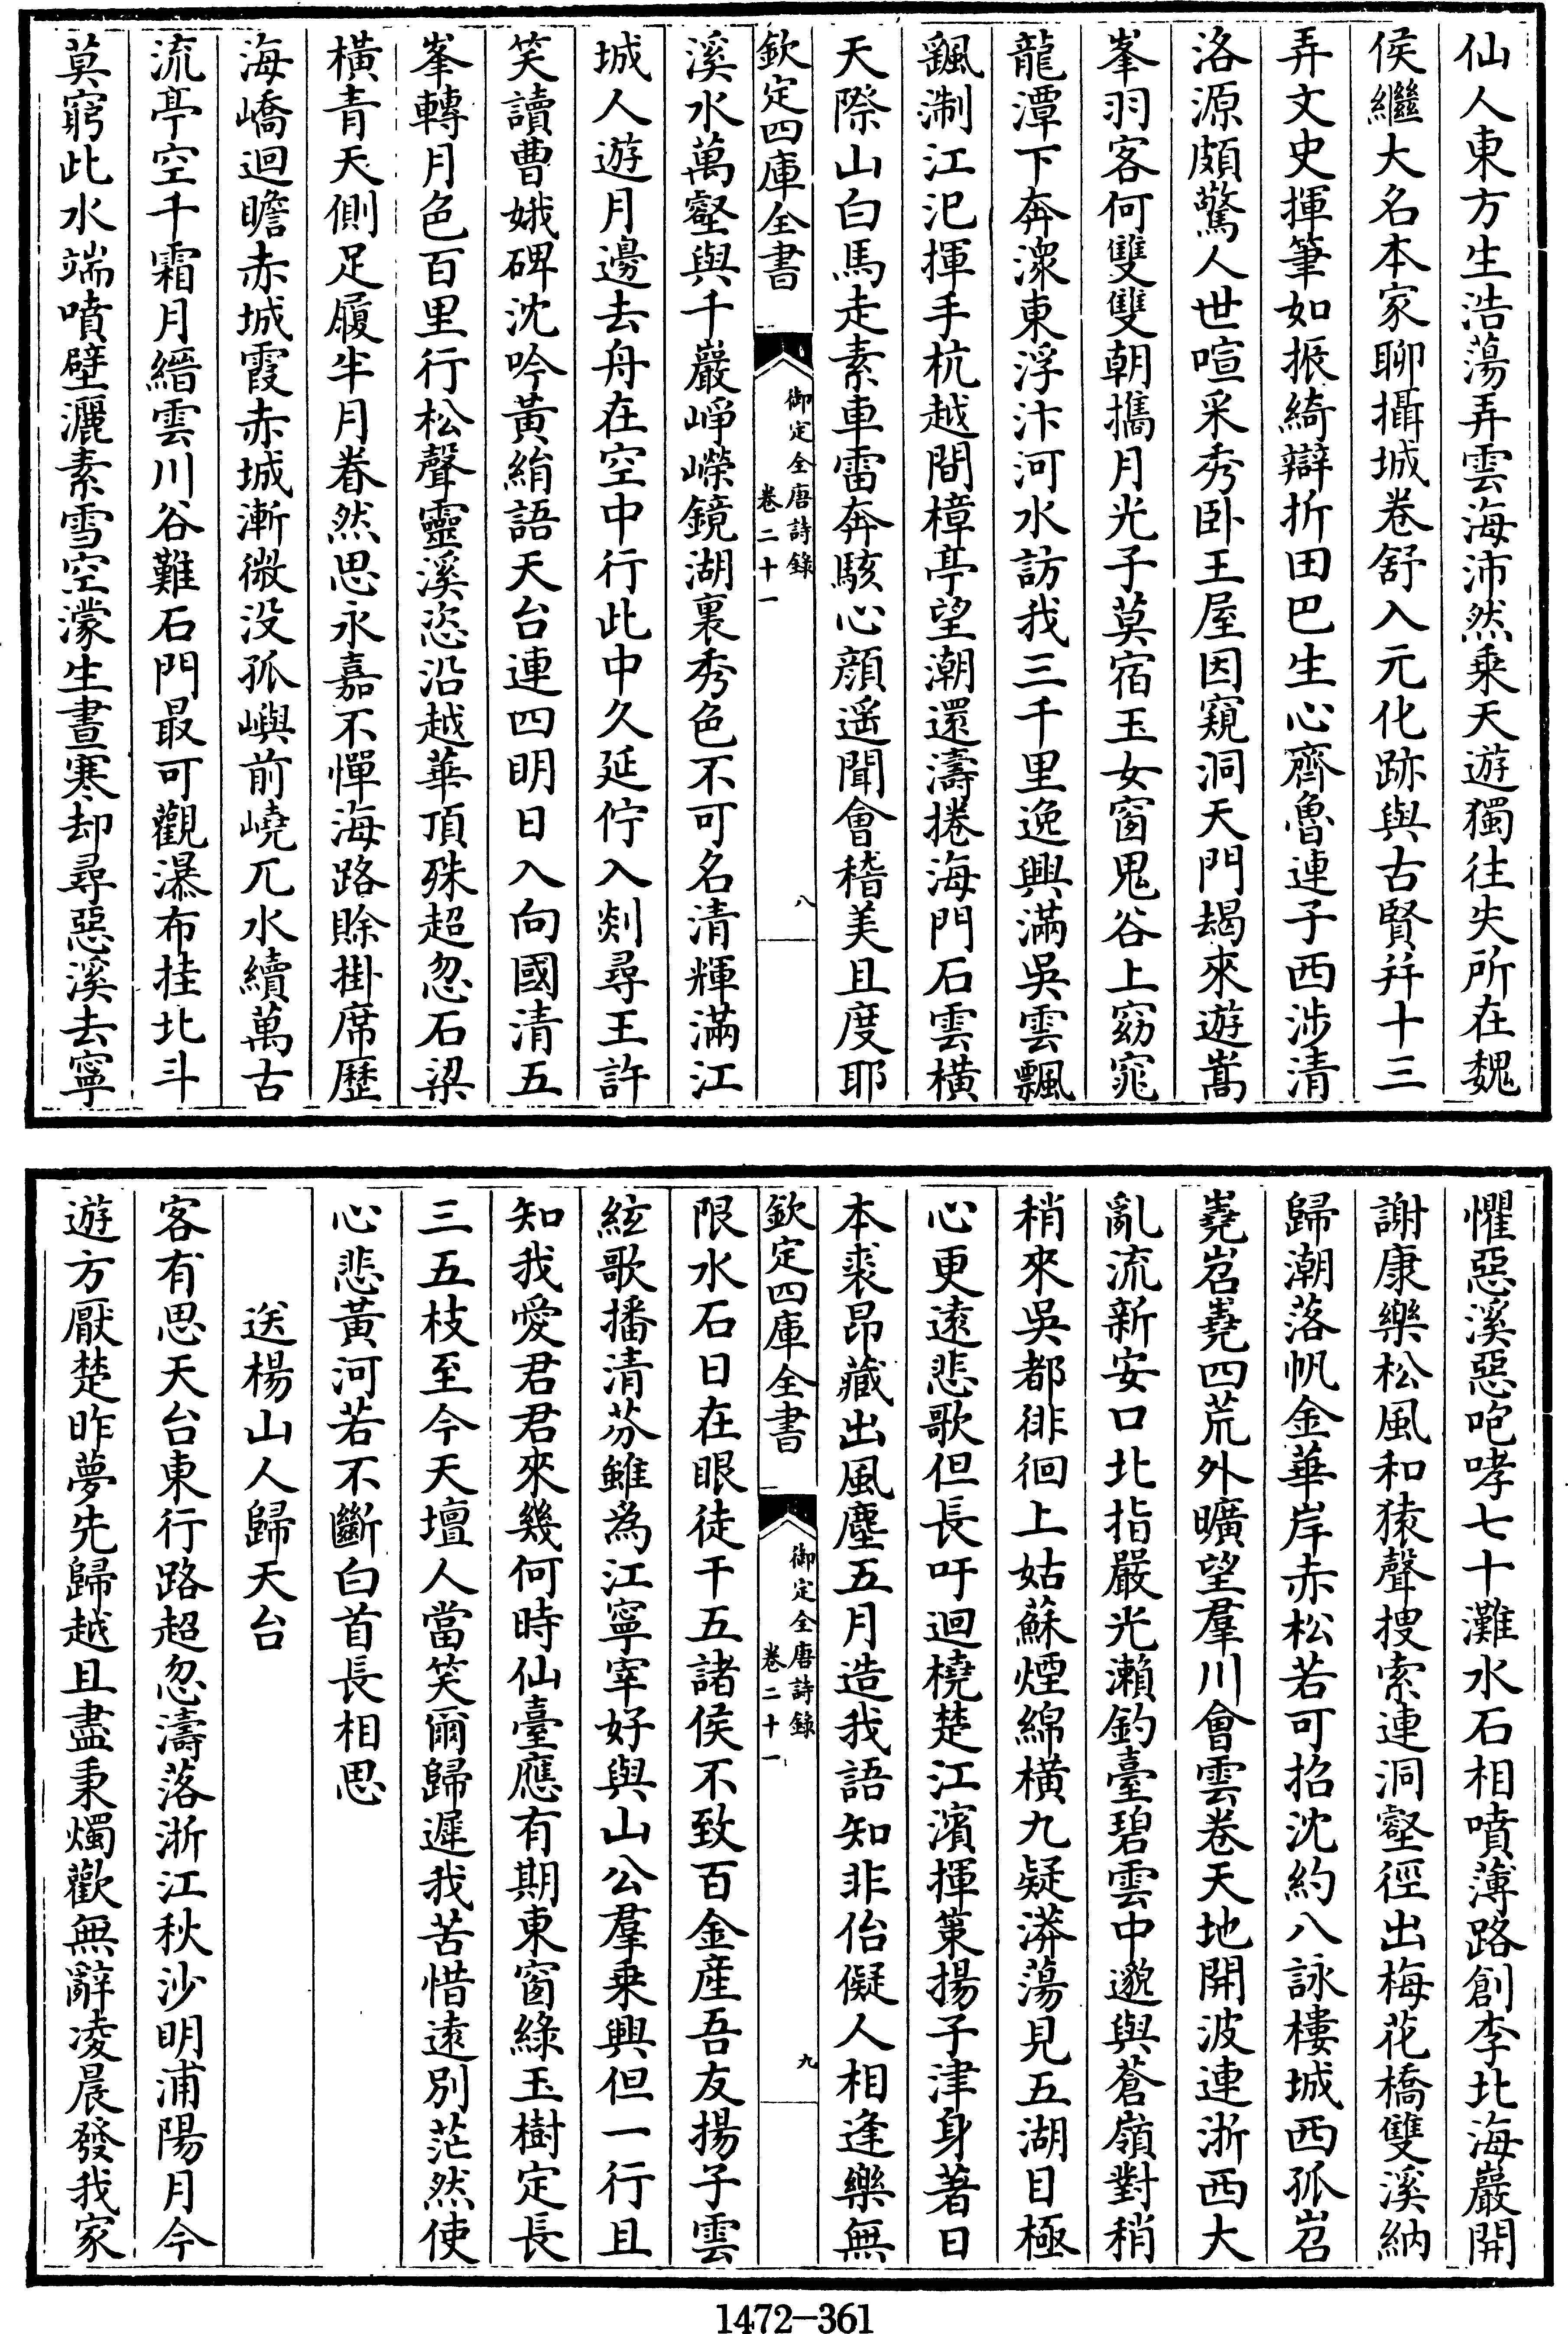 仙人東方生浩蕩弄雲海沛然乘天遊獨往失所在魏
侯繼大名本家聊攝城卷舒入元化跡與古賢并十三
弄文史揮筆如振綺辯折田巴生心齊魯連子西涉清
洛源頗驚人世喧采秀卧王屋因窺洞天門朅來遊嵩
峯羽客何雙雙朝攜月光子莫宿玉女窗鬼谷上窈窕
龍潭下奔潨東浮汴河水訪我三千里逸興滿吳雲飄
飖淛江汜揮手杭越間樟亭望潮還濤捲海門石雲橫
天際山白馬走素車雷奔駭心顏遥聞會稽美且度耶
欽定四庫全書
御定全唐詩錄
卷二十一
八
溪水萬壑與千巖崢嶸鏡湖裏秀色不可名清輝滿江
城人遊月邊去舟在空中行此中久延佇入剡尋王許
笑讀曹娥碑沈吟黃絹語天台連四明日入向國清五
峯轉月色百里行松聲靈溪恣沿越華頂殊超忽石梁
橫青天側足履半月眷然思永嘉不憚海路賒掛席歷
海嶠迴瞻赤城霞赤城漸微没孤嶼前嶢兀水續萬古
流亭空千霜月縉雲川谷難石門最可觀瀑布挂北斗
莫窮此水端噴壁灑素雪空濛生晝寒却尋惡溪去寧
懼惡溪惡咆哮七十灘水石相噴薄路創李北海巖開
謝康樂松風和猿聲搜索連洞壑徑出梅花橋雙溪納
歸潮落帆金華岸赤松若可招沈約八詠樓城西孤岧
嶤岧嶤四荒外曠望羣川會雲卷天地開波連浙西大
亂流新安口北指嚴光瀨釣臺碧雲中邈與蒼嶺對稍
稍來吳都徘徊上姑蘇煙綿橫九疑漭蕩見五湖目極
心更遠悲歌但長吁迴橈楚江濱揮策揚子津身著日
本裘昂藏出風塵五月造我語知非佁儗人相逢樂無
欽定四庫全書
御定全唐詩錄
卷二十一
九
限水石日在眼徒干五諸侯不致百金産吾友揚子雲
絃歌播清芬雖為江寧宰好與山公羣乗興但一行且
知我愛君君來幾何時仙臺應有期東窗綠玉樹定長
三五枝至今天壇人當笑爾歸遲我苦惜遠別茫然使
心悲黃河若不斷白首長相思
送楊山人歸天台
客有思天台東行路超忽濤落浙江秋沙明浦陽月今
遊方厭楚昨夢先歸越且盡秉燭歡無辭凌晨發我家
1472-361